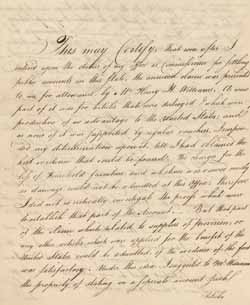 This may Certify, that soon after I
entered upon the duties of my Office as Commissioner for settling
public accounts in this State, the annexed claim was presented
to me for allowance by Mr Henry H. Williams. A very
part of it was for Articles that were destroyed, which were
productive of no advantage to the United States, and
as none of it was supported by regular vouchers, I suspended
my deliberations upon it, till I had obtained the
best evidence that could be procured. The charges for the
loss of Household furniture and whatever was viewed merely
as damage could not be admitted at this Office; therefore
I did not so critically investigate the proofs which went
to establish that part of the Account. But that part
of the Claim which related to supplies of provisions, or
any other articles which were applied for the benefit of the
United States could be admitted, if the evidence of the facts
was satisfactory. Under this idea I suggested to Mr Williams
the propriety of stating on a separate account such
Articles